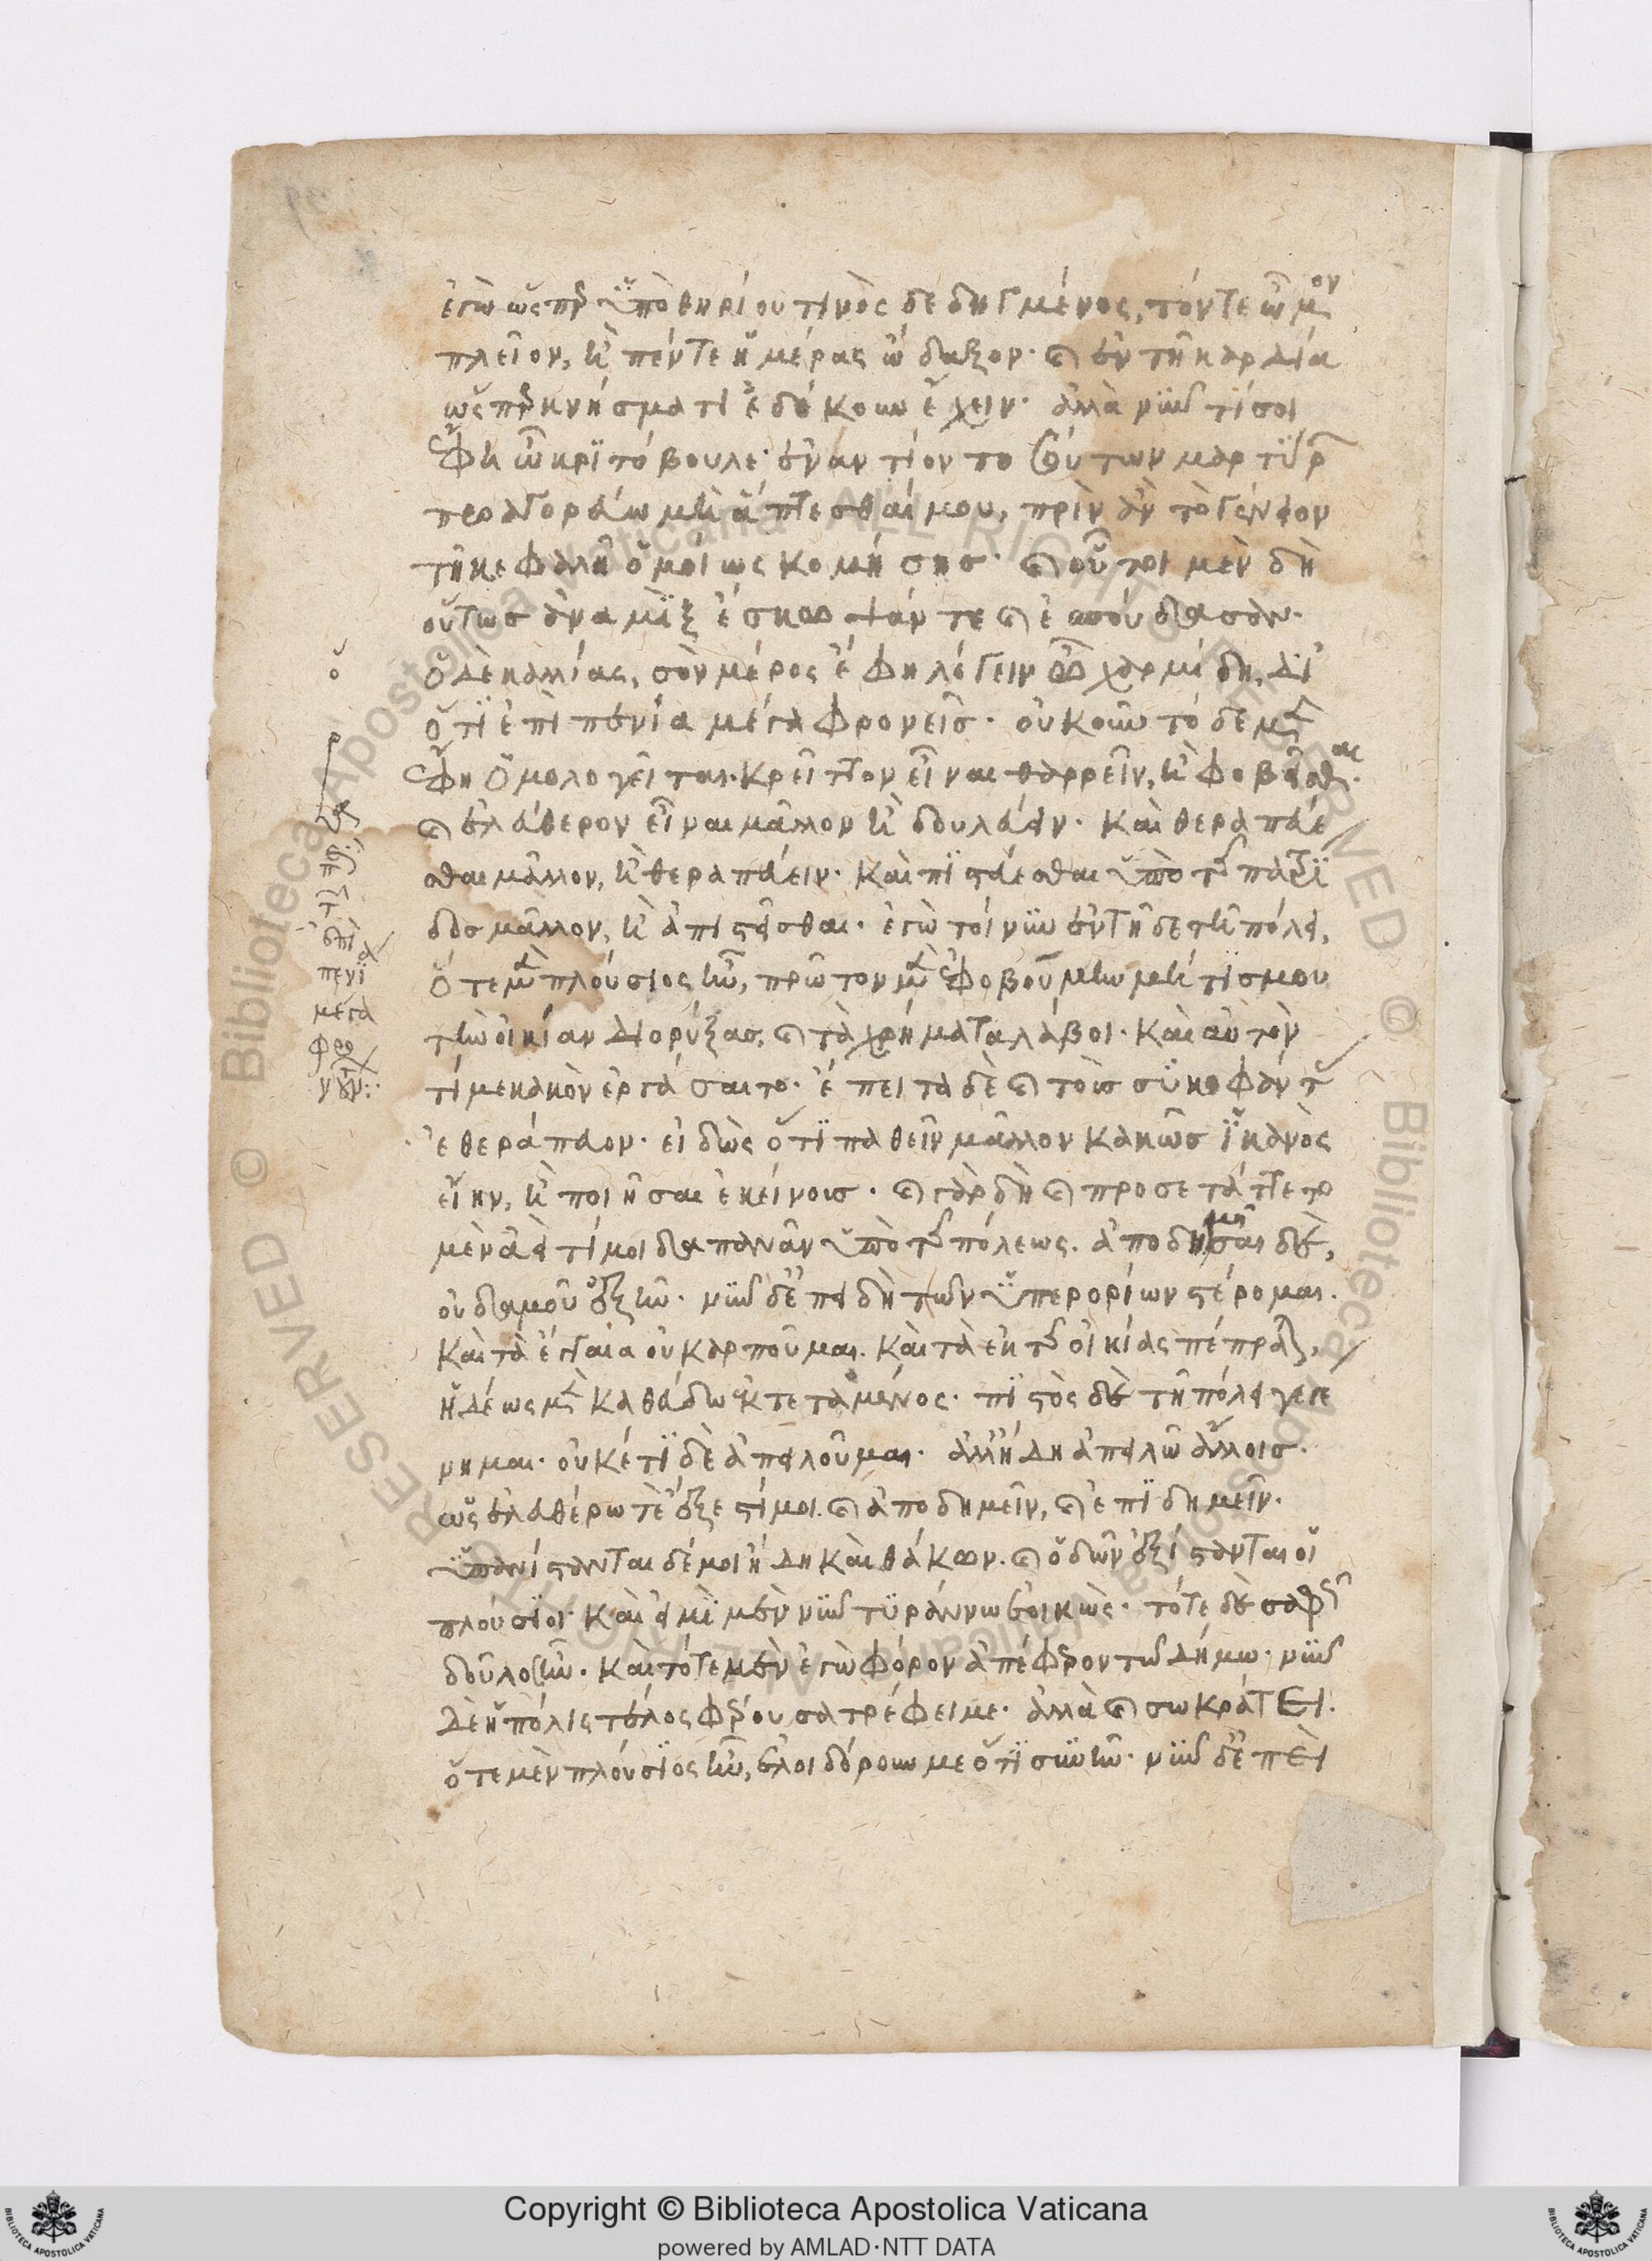 ἐγὼ ὥσπερ ὑπὸ θηρίου τινὸς δεδηγμένος, τόν τε ὦμον
πλεῖον, ἢ πέντε ἡμέρας ὤδαξον· καὶ ἐν τῇ καρδία
ὥσπερ κνήσμα τὶ ἐδόκουν ἔχειν· ἀλλὰ νῦν τί σοι
ἔφη ὦ κριτόβουλε· ἐναντίον τοσούτων μαρτύρων
προαγορεύω μὴ ἅπτεσθαί μου, πρὶν ἂν τὸ γένειον
τῇ κεφαλῇ ὁμοίως κομήσης· καὶ οὗτοι μὲν δὴ
οὕτως ἀναμὶξ ἔσκωψάν τε καὶ ἐσπούδασαν·
ὁ δὲ καλλίας, σὸν μέρος ἔφη λέγειν ὦ χαρμίδη, δι'
ὅτι ἐπὶ πενία μέγα φρονεῖς· οὐκοῦν τόδε μὲν
ἔφη ὁμολογεῖται· κρεῖττον εἶναι θαρρεῖν, ἢ φοβεῖσθαι·
καὶ ἐλεύθερον εἶναι μᾶλλον ἢ δουλεύειν· καὶ θεραπεύε
σθαι μᾶλλον, ἢ θεραπεύειν· καὶ πιστεύεσθαι ὑπὸ τῆς πατρί
δος μᾶλλον, ἢ ἀπιστεῖσθαι· ἐγὼ τοίνυν ἐν τῇδε τῇ πόλει,
ὅτε μὲν πλούσιος ἦν, πρῶτον μὲν ἐφοβούμην μή τίς μου
τὴν οἰκίαν διορύξας, καὶ τὰ χρήματα λάβοι· καὶ αὐτὸν
τί με κακὸν ἐργάσαιτο· ἔπειτα δὲ καὶ τοὺς συκοφάντας
ἐθεράπευον· εἰδὼς ὅτι παθεῖν μᾶλλον κακῶς ἱκανὸς
εἴην, ἢ ποιῆσαι ἐκείνοις· καὶ γὰρ δὴ καὶ προσετάττετο
μὲν ἀεί τί μοι δαπανᾶν ὑπὸ τῆς πόλεως. ἀποδημῆσαι δὲ,
οὐδαμοῦ ἐξῆν· νῦν δ' ἐπειδὴ τῶν ὑπερορίων στέρομαι.
καὶ τὰ ἔγγαια οὐ καρποῦμαι. καὶ τὰ ἐκ τῆς οἰκίας πέπραται,
ἡδέως μὲν καθεύδω ἐκτεταμένος· πιστὸς δὲ τῇ πόλει γεγέ
νημαι· οὐκέτι δὲ ἀπειλοῦμαι· ἀλλ' ἤδη ἀπειλῶ ἄλλοις·
ὡς ἐλευθέρω τὲ ἔξεστί μοι. καὶ ἀποδημεῖν, καὶ ἐπιδημεῖν·
ὑπανίστανται δέ μοι ἤδη καὶ θάκων. καὶ ὁδῶν ἐξίστανται οἱ
πλούσιοι· καὶ εἰμὶ μὲν νῦν τυράννω ἐοικώς· τότε δὲ σαφῶς
δοῦλος ἦν· καὶ τότε μὲν ἐγὼ φόρον ἀπέφερον τῶ δήμω· νῦν
δὲ ἡ πόλις τέλος φέρουσα τρέφει με· ἀλλὰ καὶ σωκράτει
ὅτε μὲν πλούσιος ἦν, ἐλοιδόρουν με ὅτι συνῆν· νῦν δ' ἐπεὶ